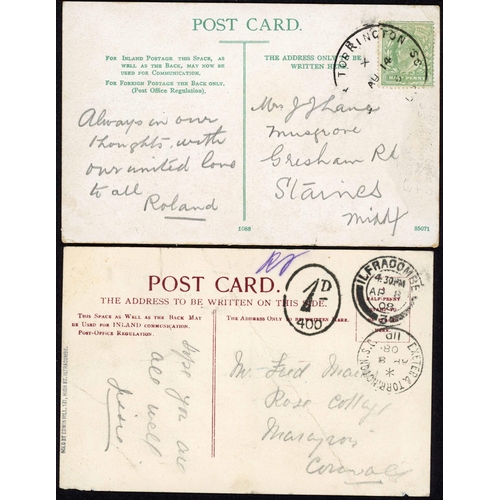 POST CARD.
FOR INLAND POSTAGE THIS SPACE, AS
WELL AS THE BACK, MAY NOW BE
USED FOR COMMUNICATION.
FOR FOREIGN POSTAGE THE BACK ONLY.
(Post Office Regulation).
THE ADDRESS ONLY TO BE
WRITTEN HERE
TORRINGTON
AU 14
Always in our
thoughts, with
our united love
to all
Roland
Mrs J
Musgrove
Gresham Rd
Staines
Middx
1068
85071
POST CARD.
THE ADDRESS TO BE WRITTEN ON THIS SIDE.
THIS SPACE AS WELL AS THE BACK MAY
BE USED FOR INLAND COMMUNICATION.
POST-OFFICE REGULATION.
THE ADDRESS ONLY TO BE WRITTEN HERE.
1D
400
ILFRACOMBE
4.30PM
AP 8
08
HALF-PENNY
EXETER & TORRINGTON.S.
AP 8
08
hope you
are
all well
Mr Fred
Rose Cottage
Marazion
Cornwall